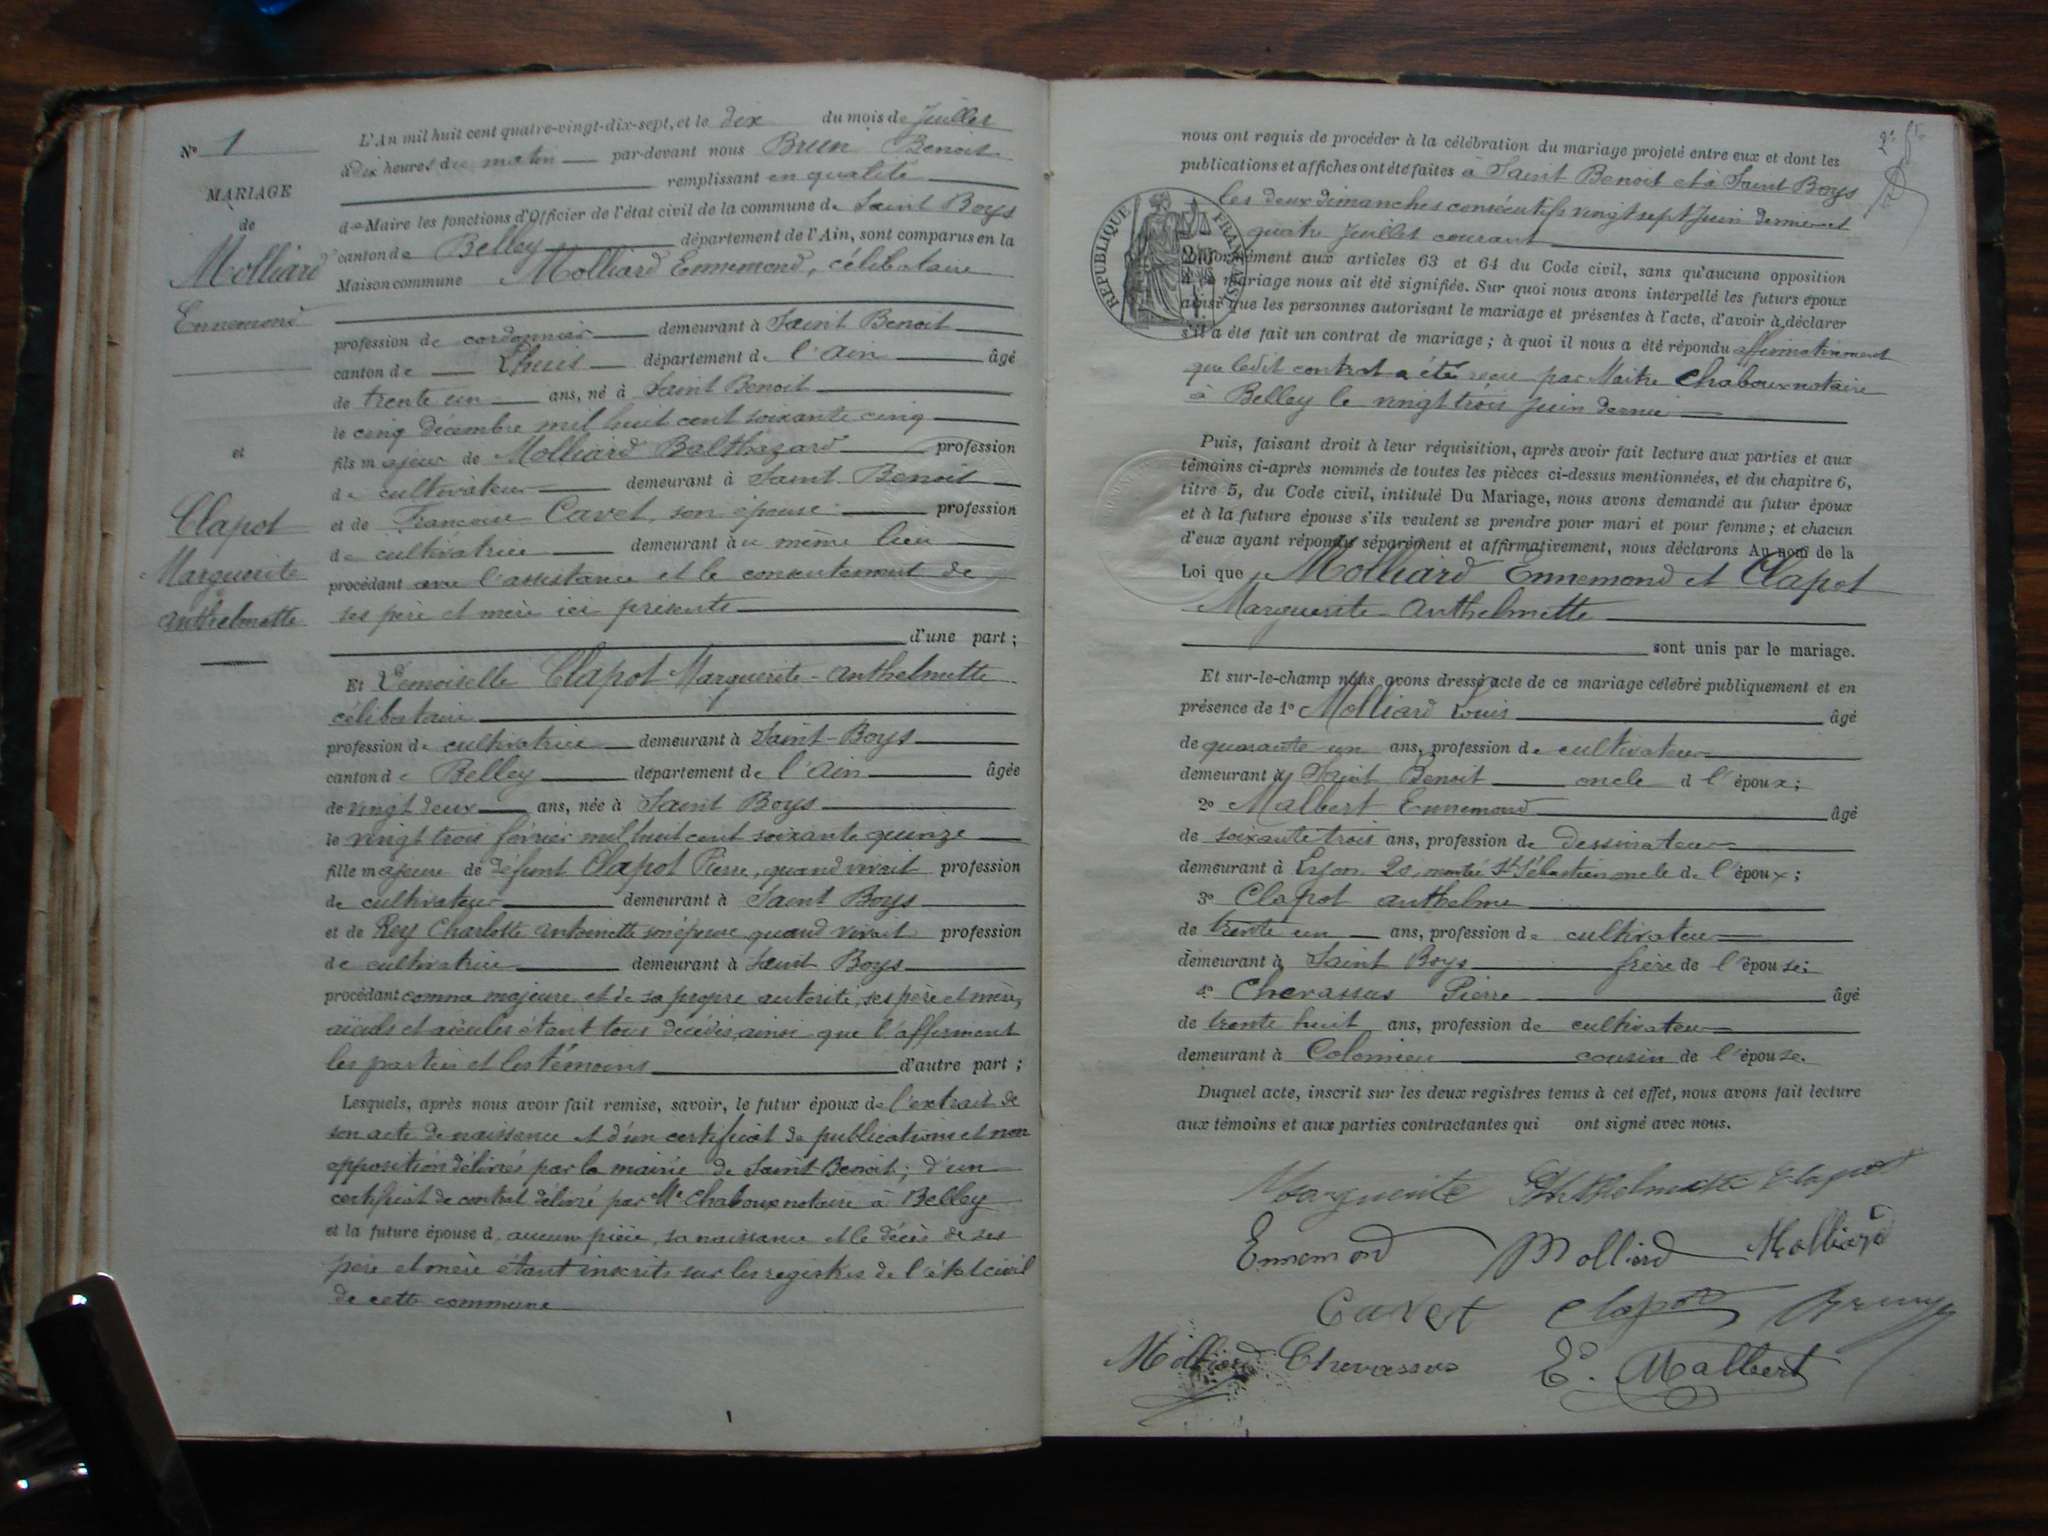 N° 1
MARIAGE
de
Molliard
Ennemond
et
Clapot
Marguerite
Anthelmette
L'An mil huit cent quatre-vingt-dix-sept, et le dix du mois de Juillet
à dix heures du matin par-devant nous Brun Benoit
remplissant en qualité
de Maire les fonctions d'Officier de l'état civil de la commune de Saint Boys
canton de Belley département de l'Ain, sont comparus en la
Maison commune Molliard Ennemond, célibataire
profession de cordonnier demeurant à Saint Benoit
canton de Lhuis département de l'Ain âgé
de trente un ans, né à Saint Benoit
le cinq décembre mil huit cent soixante cinq
fils majeur de Molliard Balthazard profession
de cultivateur demeurant à Saint Benoit
et de Françoise Cavet, son épouse profession
de cultivatrice demeurant au même lieu
procédant avec l'assistance et le consentement de
ses père et mère ici présents
d'une part ;
Et Demoiselle Clapot Marguerite-Anthelmette
célibataire
profession de cultivatrice demeurant à Saint-Boys
canton de Belley département de l'Ain âgée
de vingt deux ans, née à Saint Boys
le vingt trois février mil huit cent soixante quinze
fille majeure de défunt Clapot Pierre, quand vivait profession
de cultivateur demeurant à Saint Boys
et de Rey Charlotte Antoinette son épouse quand vivait profession
de cultivatrice demeurant à Saint Boys
procédant comme majeure et de sa propre autorité, ses père et mère,
aïeuls et aïeules étant tous décédés, ainsi que l'affirment
les parties et les témoins d'autre part ;
Lesquels, après nous avoir fait remise, savoir, le futur époux de l'extrait de
son acte de naissance et d'un certificat de publications et non
opposition délivrés par la mairie de Saint Benoit ; d'un
certificat de contrat délivré par Me Chaboux notaire à Belley
et la future épouse d'aucune pièce, sa naissance et le décès de ses
père et mère étant inscrits sur les registres de l'état civil
de cette commune
nous ont requis de procéder à la célébration du mariage projeté entre eux et dont les
publications et affiches ont été faites à Saint Benoit et à Saint Boys
les deux dimanches consécutifs vingt sept Juin dernier et
quatre Juillet courant
RÉPUBLIQUE FRANÇAISE
conformément aux articles 63 et 64 du Code civil, sans qu'aucune opposition
à ce mariage nous ait été signifiée. Sur quoi nous avons interpellé les futurs époux
ainsi que les personnes autorisant le mariage et présentes à l'acte, d'avoir à déclarer
s'il a été fait un contrat de mariage ; à quoi il nous a été répondu affirmativement
que ledit contrat a été reçu par Maitre Chaboux notaire
à Belley le vingt trois Juin dernier
Puis, faisant droit à leur réquisition, après avoir fait lecture aux parties et aux
témoins ci-après nommés de toutes les pièces ci-dessus mentionnées, et du chapitre 6,
titre 5, du Code civil, intitulé Du Mariage, nous avons demandé au futur époux
et à la future épouse s'ils veulent se prendre pour mari et pour femme ; et chacun
d'eux ayant répondu séparément et affirmativement, nous déclarons Au nom de la
Loi que Molliard Ennemond et Clapot
Marguerite-Anthelmette
sont unis par le mariage.
Et sur-le-champ nous avons dressé acte de ce mariage célébré publiquement et en
présence de 1° Molliard Louis âgé
de quarante un ans, profession de cultivateur
demeurant à Saint Benoit oncle d l'époux ;
2° Malbert Ennemond âgé
de soixante trois ans, profession de dessinateur
demeurant à Lyon 20, montée St Sébastien oncle de l'époux ;
3° Clapot Anthelme
de trente un ans, profession de cultivateur
demeurant à Saint Boys frère de l'épouse ;
4° Chevassus Pierre âgé
de trente huit ans, profession de cultivateur
demeurant à Colomieu cousin de l'épouse.
Duquel acte, inscrit sur les deux registres tenus à cet effet, nous avons fait lecture
aux témoins et aux parties contractantes qui ont signé avec nous.
Marguerite Anthelmette Clapot
Ennemond Molliard Molliard
Cavet Clapot Brun
Molliard Chevassus E. Malbert